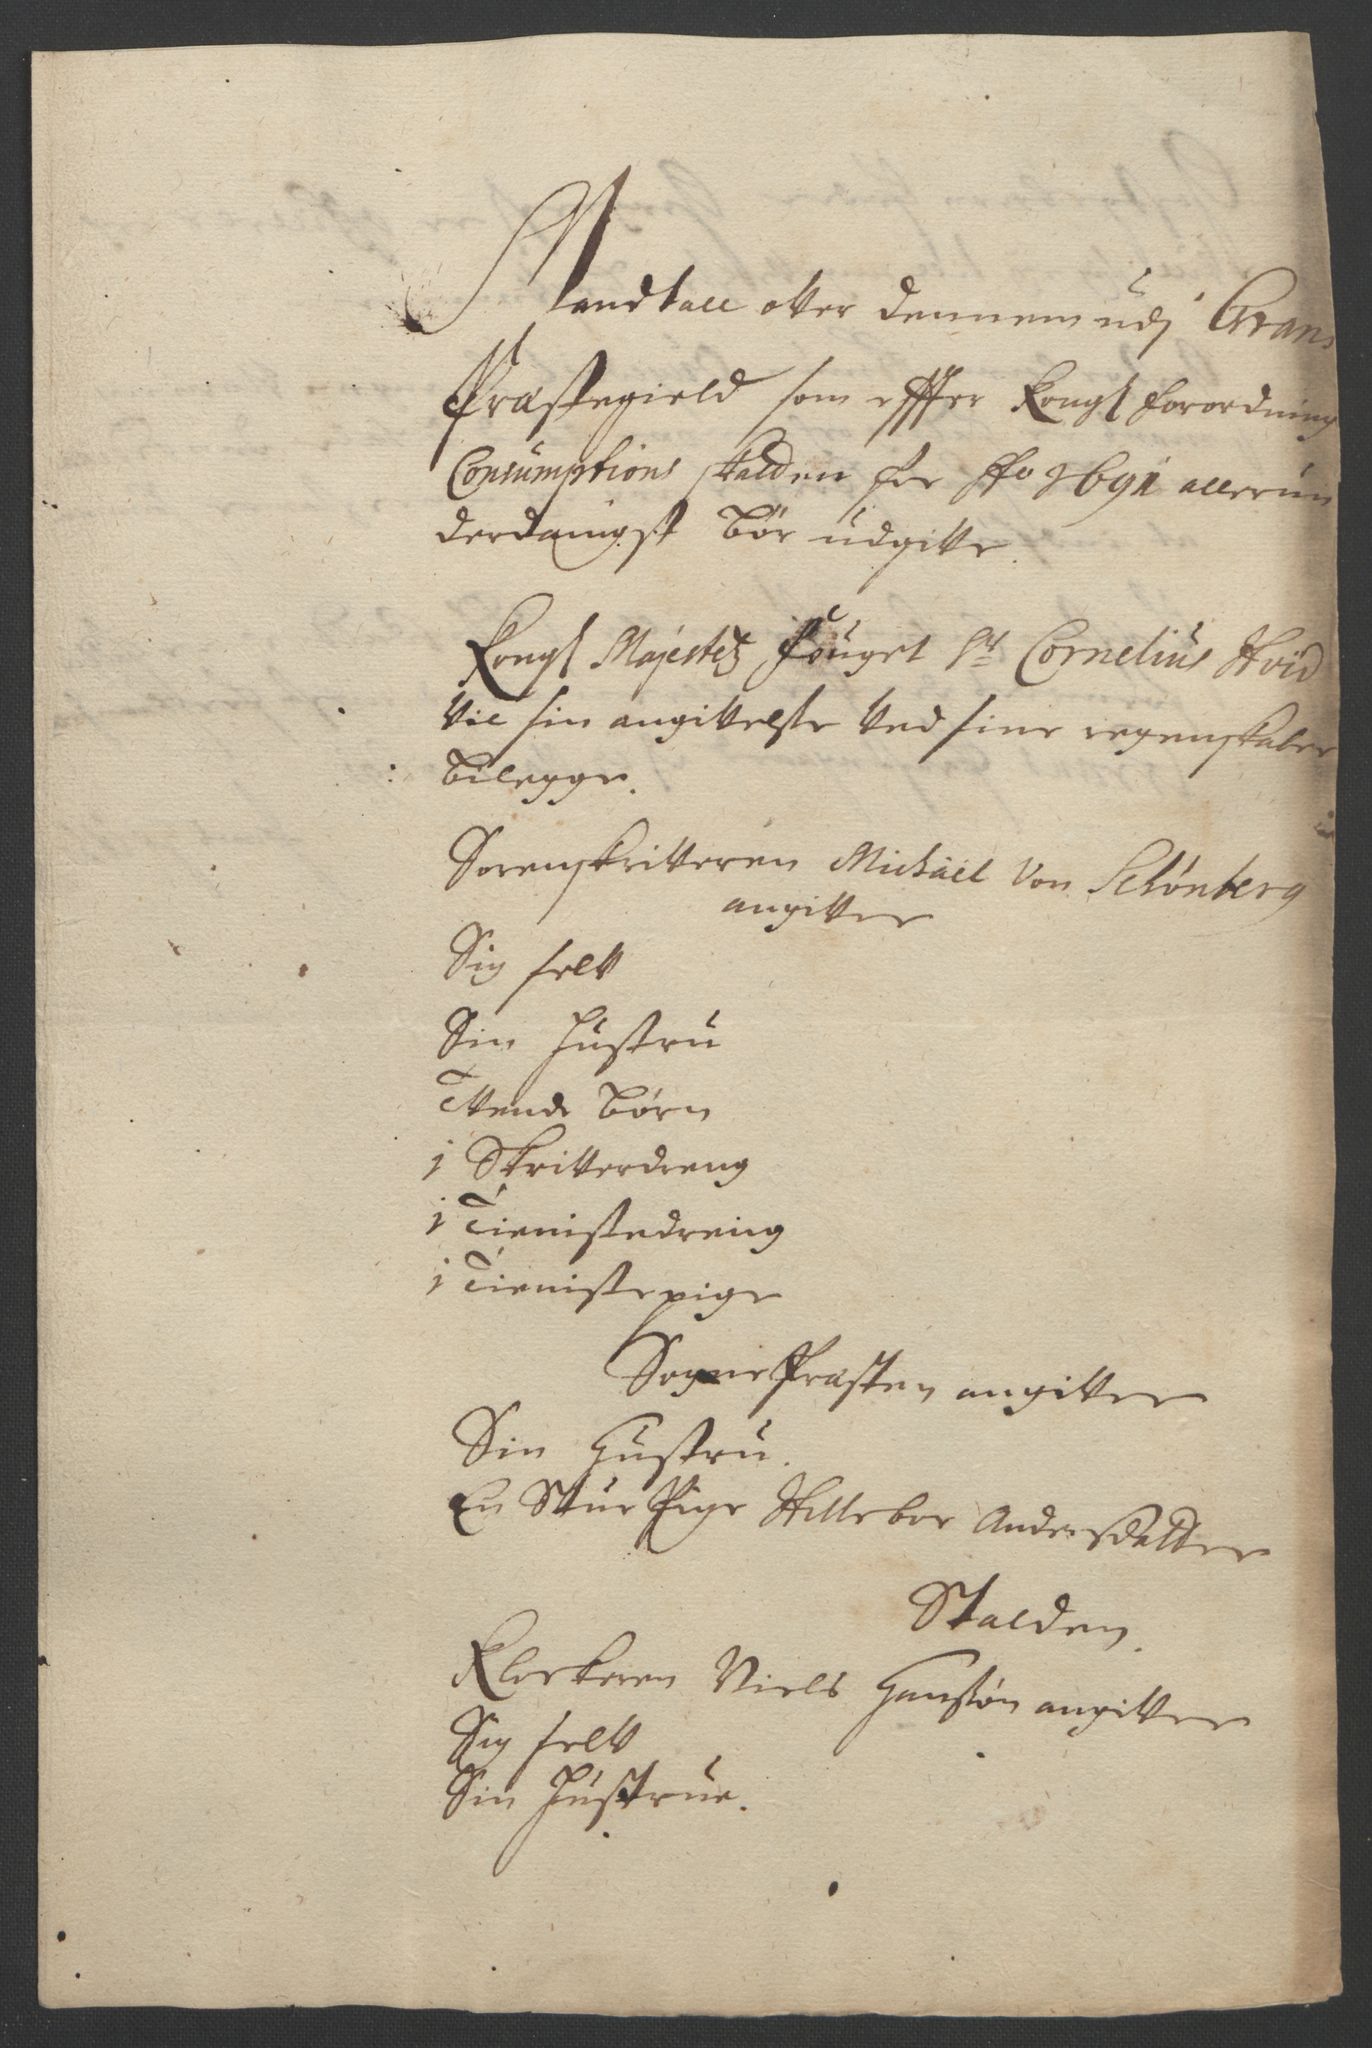 Mandtall offver dennem udj Grans
Præstegield som effter Kongl forordning
Consumptions skatten for Ao 1691 allerun
derdanigst bør udgifve.
Kongl Majestetz Fouget Sr Cornelius Hvid
vil sin angifvelse ved sine regenskaber
bilegge.
Sorenskrifveren Michäel von Schønberg
angifver
Sig self
Sin Hustru
Tvende børn
1 Skrifverdreng
1 Tienistedreng
1 Tieniste pige
Sogne Præsten angifver
Sin Hustru.
En Stue Pige Hilleboe Andersdatter
Skatten.
Klockeren Niels Hansøn angifver
Sig self
Sin Hustrue.